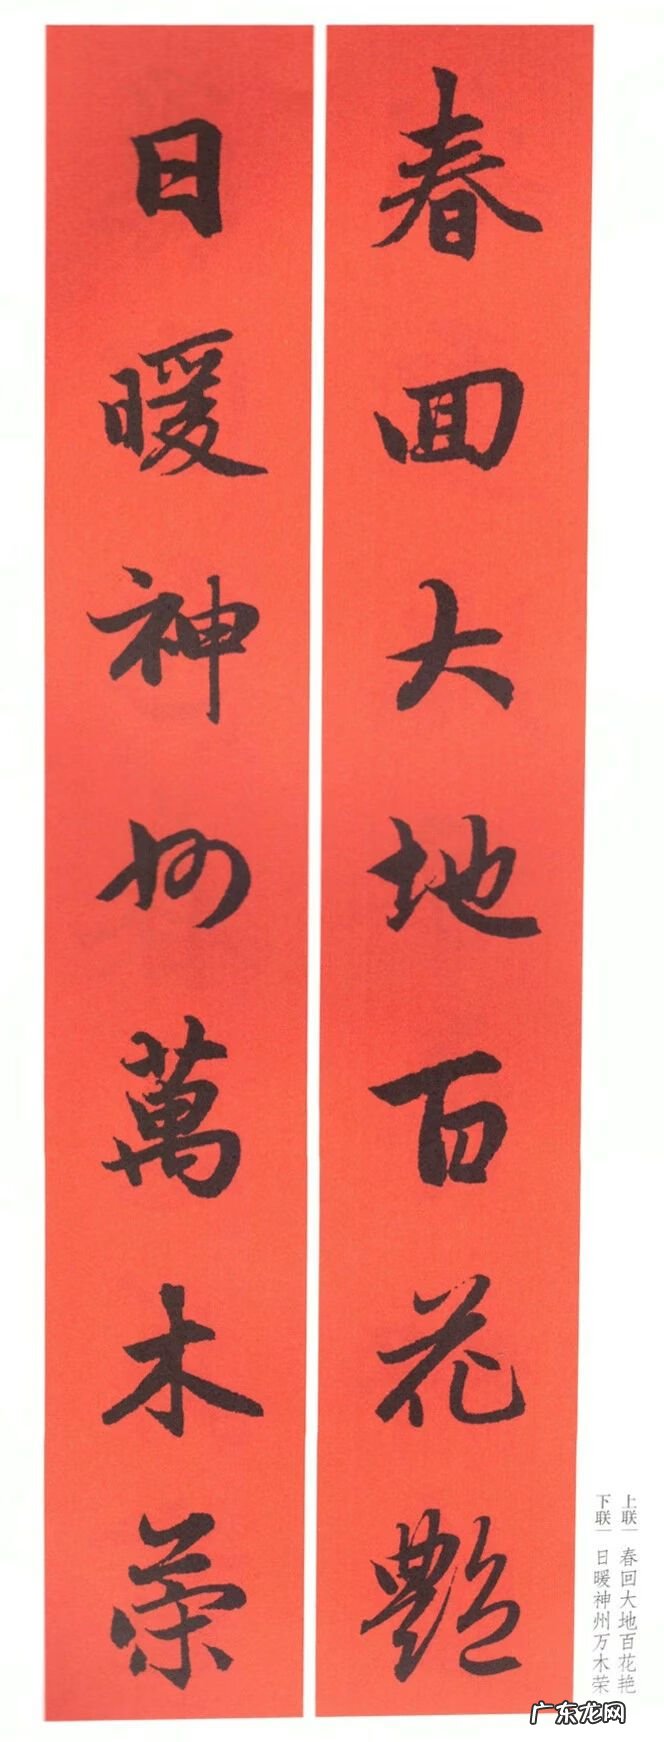 春回大地百花艷
日暖神州萬木荣
上联｜春回大地百花艳
下联｜日暖神州万木荣
广东龙网